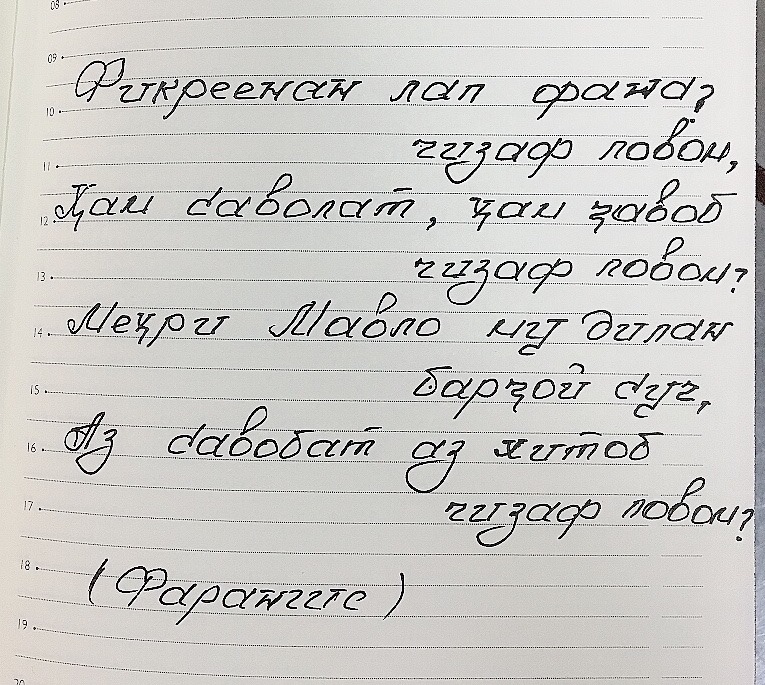 08
09
Фикреенан лап фана?
10
чизаф ловом,
11
Ҳам саволат, ҳам ҷавоб
12
чизаф ловом?
13
Меҳри Мавло му дилан
14
барҷой суч,
15
Аз савобат аз хитоб
16
чизаф ловом?
17
18
(Фарангис)
19
20